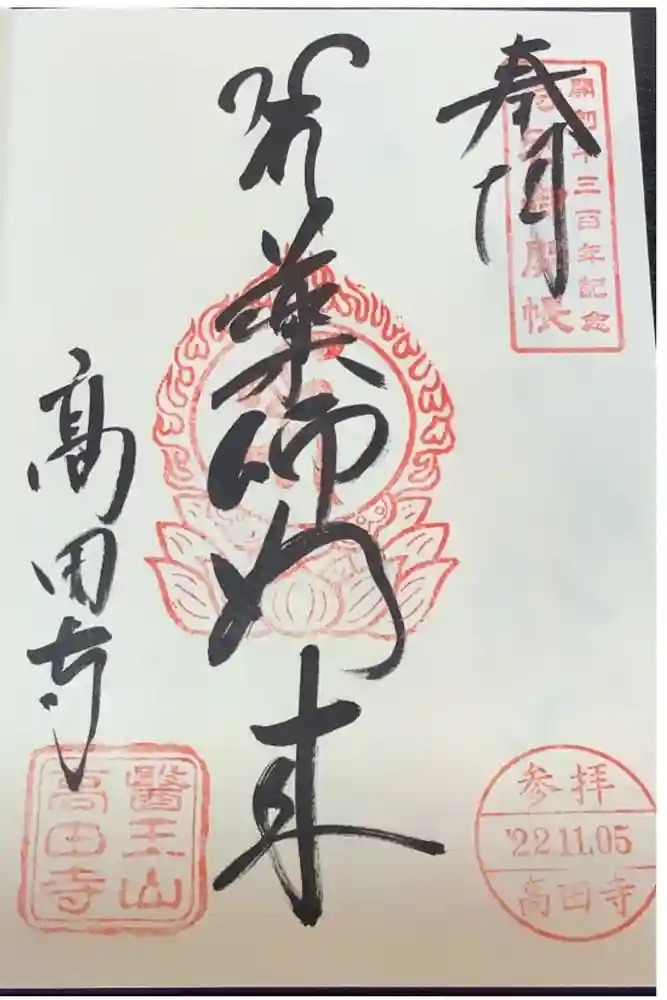 奉拝
開創千三百年記念
秘仏御開帳
薬師如来
高田寺
醫王山
高田寺
参拝
'22.11.05
高田寺